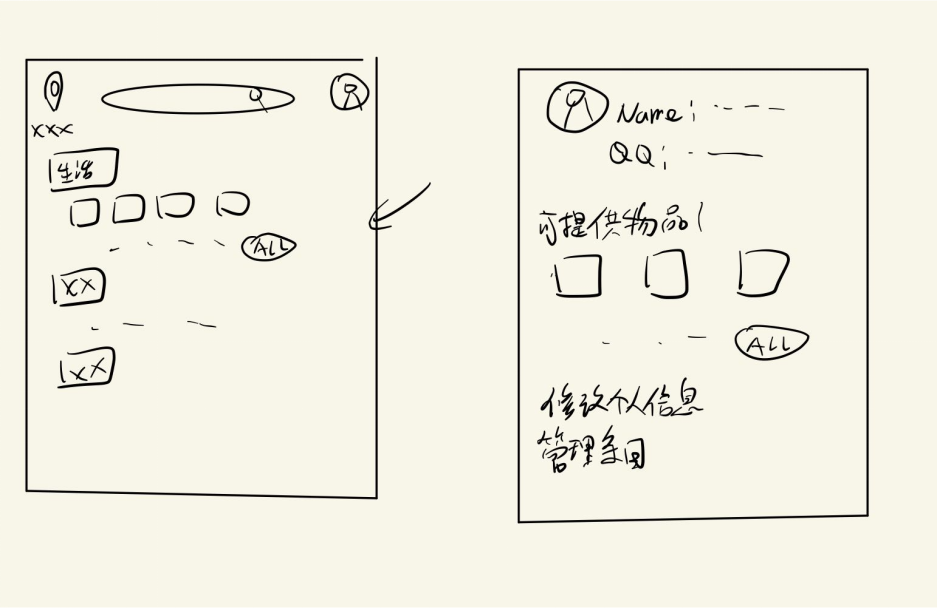 xxx
生活
ALL
XX
XX
Name:
QQ:
可提供物品
ALL
修改个人信息
管理条目